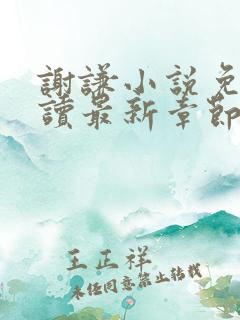 謝謙小說免
讀最新章節
王正祥
未經同意禁止轉載